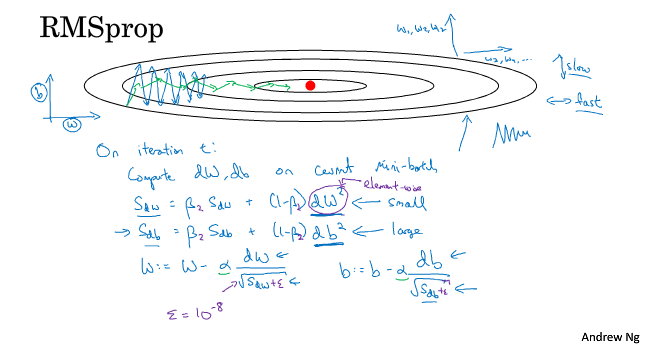 RMSprop
w₁, w₂, w₂
w₃, w₄, ...
↕ slow
↔ fast
b
w
On iteration t:
Compute dW, db on current mini-batch
element-wise
S_dw = β₂ S_dw + (1-β₂) dW² ← small
→ S_db = β₂ S_db + (1-β₂) db² ← large
w := w - α dw/√(S_dw+ε) ←
b := b - α db/√(S_db+ε) ←
ε = 10⁻⁸
Andrew Ng